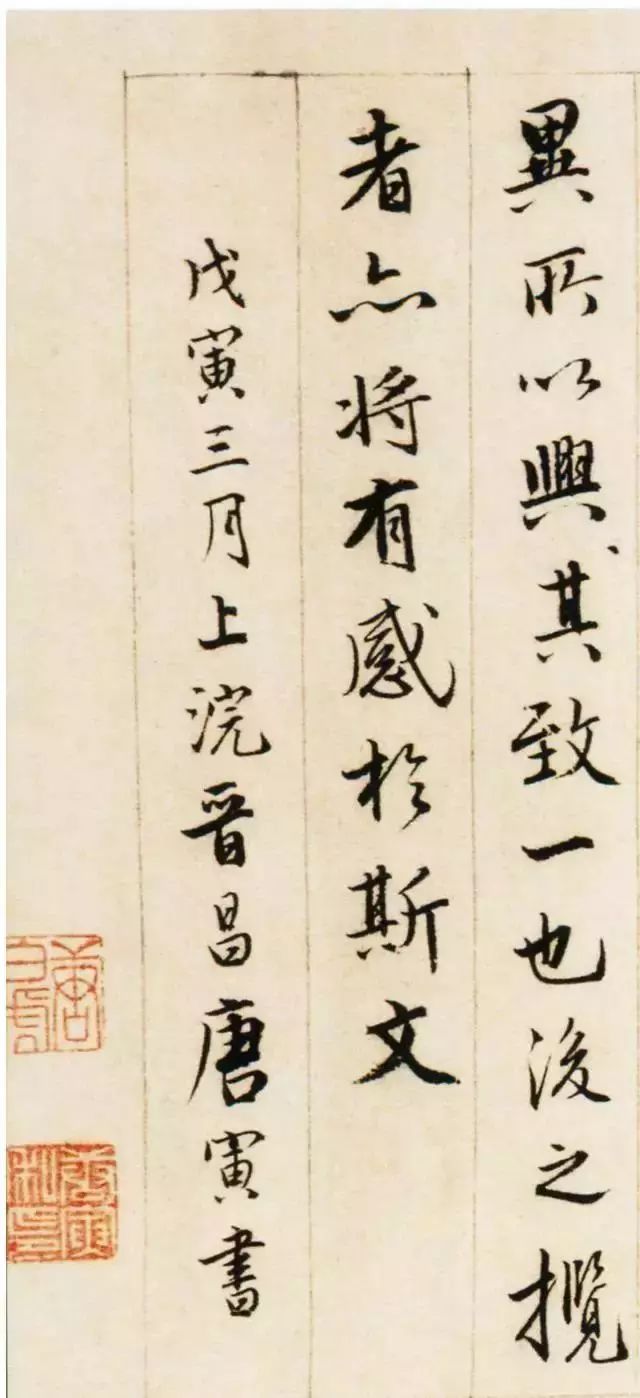 異所以興其致一也後之攬
者亦將有感於斯文
戊寅三月上浣晉昌唐寅書
唐白虎
唐寅私印